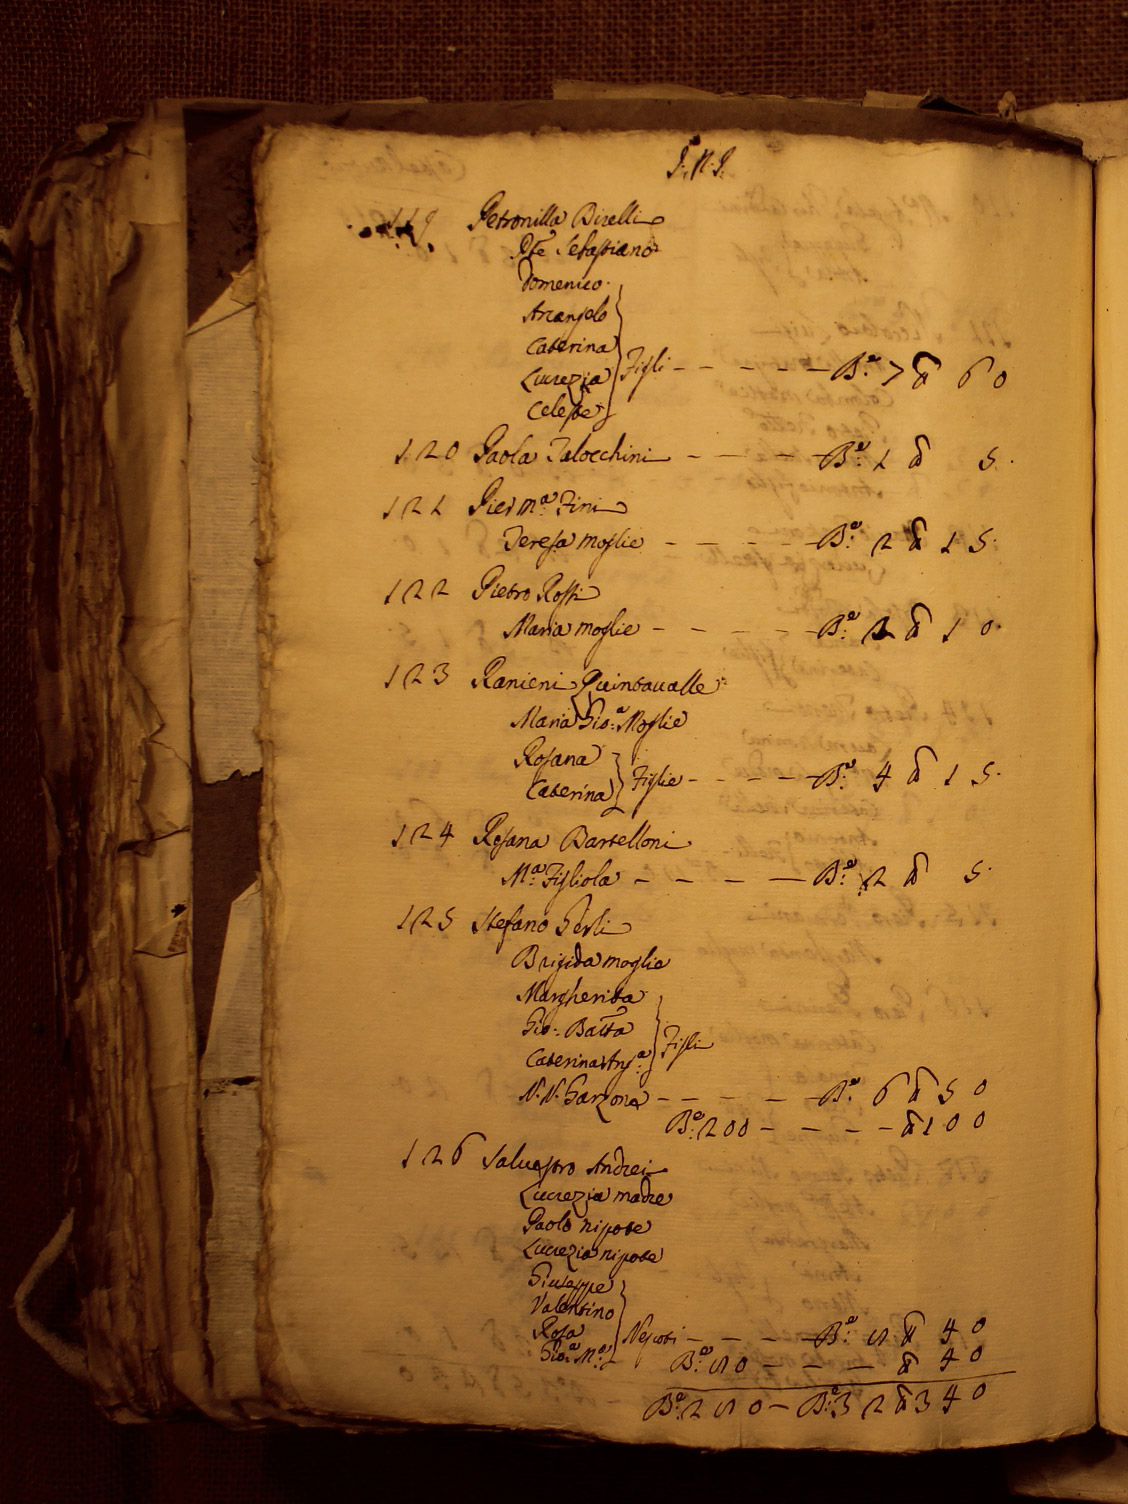 J. N. J.
119 Petronilla Birelli
Dte Sebastiano
Domenico
Arcangelo
Caterina
Lucrezia Figli - - - - - Be. 7 60
Celeste
120 Paola Talocchini - - - - Be. 1 5.
121 Pier Ma. Fini
Teresa moglie - - - - - Be. 2 15.
122 Pietro Rossi
Maria moglie - - - - - Be. 2 10.
123 Ranieri Quintavalle
Maria Gio:a Moglie
Rosana
Caterina Figlie - - - - Be. 4 15.
124 Rosana Bartelloni
Ma. Figliola - - - - Be. 2 5.
125 Stefano Gerli
Brigida moglie
Margherita
Gio: Batta
Caterina Ang.a Figli
N. N. Garzona - - - - Be. 6 50
Be. 200 - - - - - 100
126 Salvestro Andrei
Lucrezia madre
Paolo nipote
Lucrezia nipote
Giuseppe
Valentino
Rosa Nepoti - - - - Be. 5 40
Gio:a Ma. Be. 50 - - - - 40
Be. 250 - Be. 32 340